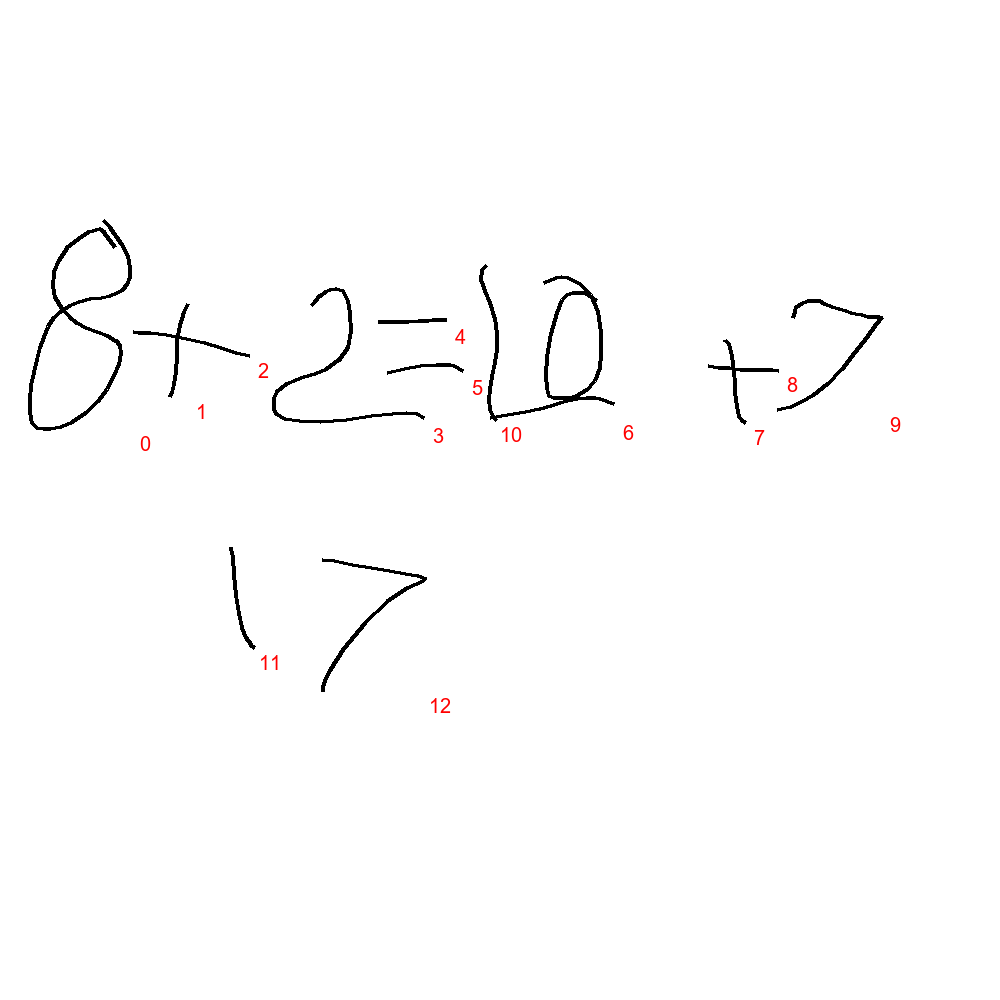 8+2=10+7
0 1 2 3 4 5 10 6 7 8 9
17
11 12